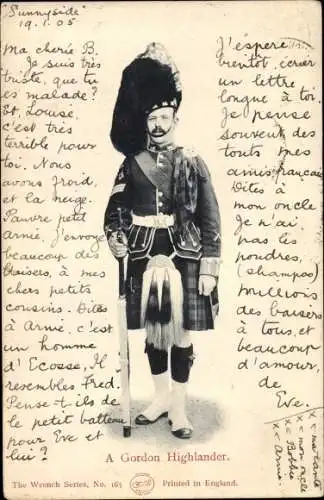 "Sunnyside"
19.1.05
Ma cherié B.
Je suis très
triste, que tu
es malade?
Et, Louise,
c'est très
terrible pour
toi. Nous
avons froid,
et la neige.
Pauvre petit
armié. J'envoye
beaucoup des
baisers, à mes
chers petits
cousins. Dites
à Armié, c'est
un homme
d'Ecosse, Il
resembles Fred.
Pense-t-ils de
le petit bateau
pour Eve et
lui?
J'éspère
bientôt, écrier
un lettre
longue à toi.
Je pense
souvent des
touts mes
amis français
Dites à
mon oncle
Je n'ai
pas les
poudres,
(shampos)
Millions
des baisers
à tous, et
beaucoup
d'amour,
de
Eve.
x x ma tante
x x mon oncle
x x Bobbie
x x Armié
A Gordon Highlander.
The Wrench Series, No. 165 Printed in England.